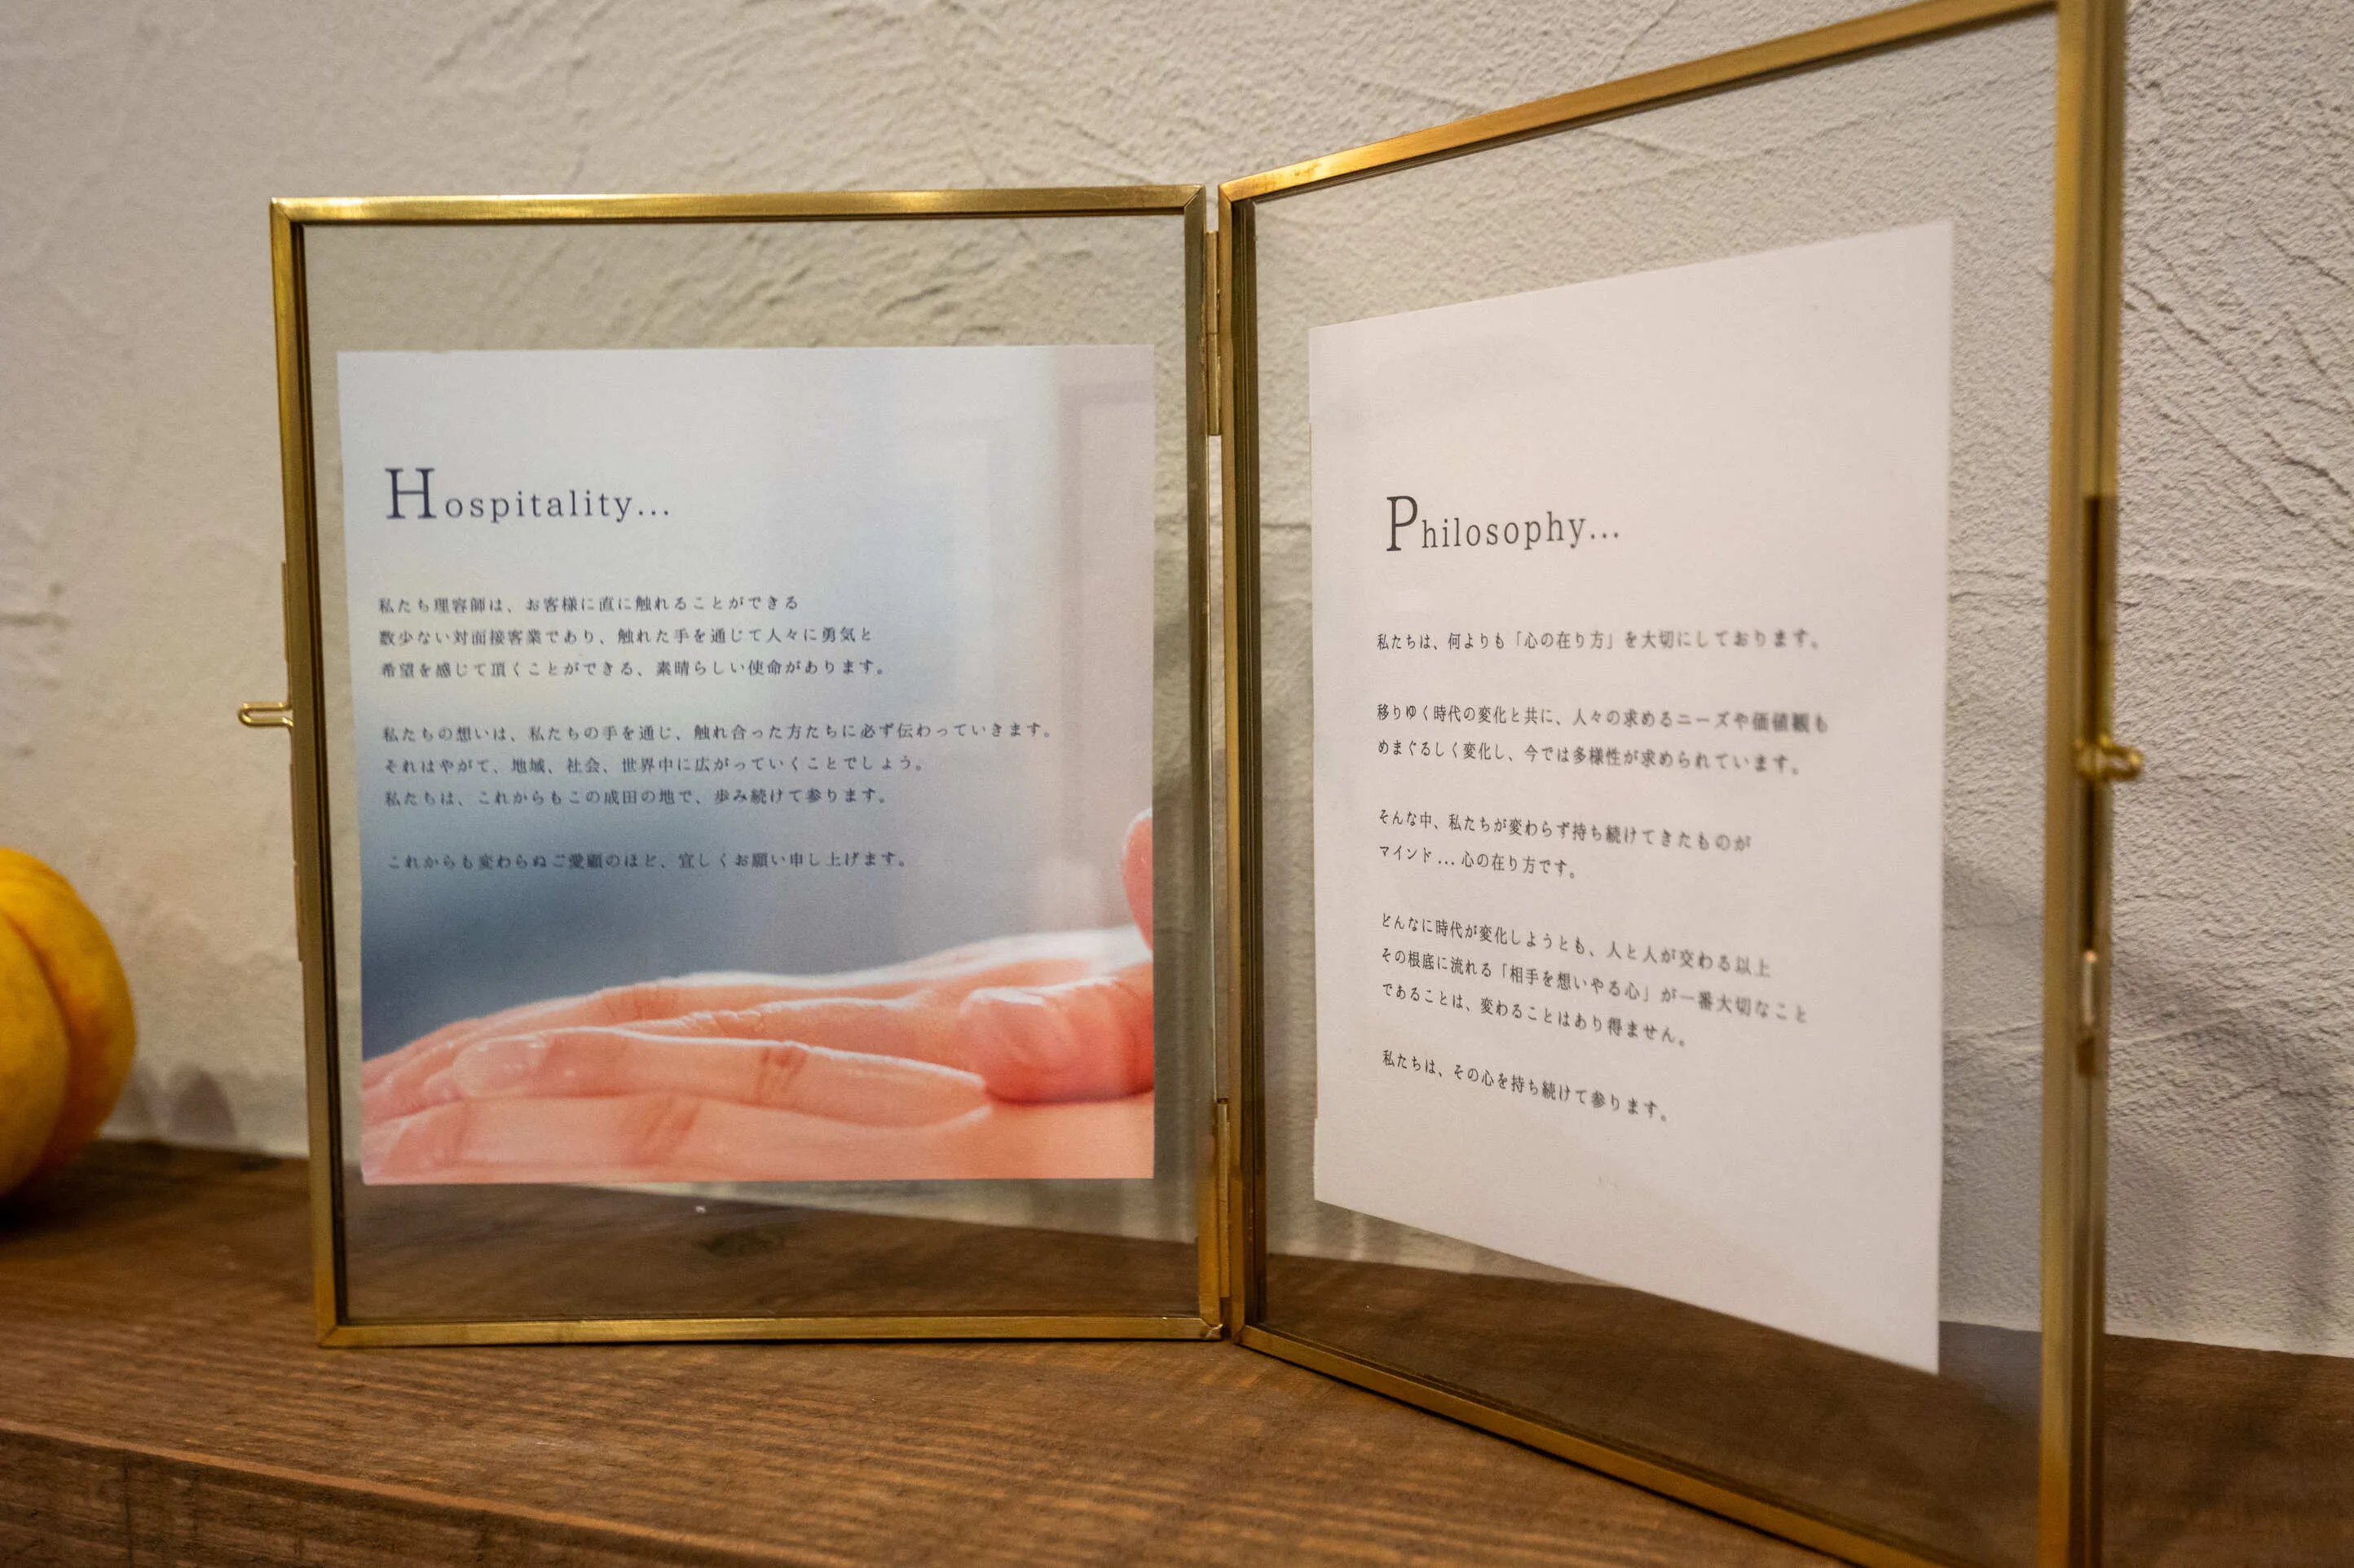 Hospitality...
私たち理容師は、お客様に直に触れることができる
数少ない対面接客業であり、触れた手を通じて人々に勇気と
希望を感じて頂くことができる、素晴らしい使命があります。
私たちの想いは、私たちの手を通じ、触れ合った方たちに必ず伝わっていきます。
それはやがて、地域、社会、世界中に広がっていくことでしょう。
私たちは、これからもこの成田の地で、歩み続けて参ります。
これからも変わらぬご愛顧のほど、宜しくお願い申し上げます。
Philosophy...
私たちは、何よりも「心の在り方」を大切にしております。
移りゆく時代の変化と共に、人々の求めるニーズや価値観も
めまぐるしく変化し、今では多様性が求められています。
そんな中、私たちが変わらず持ち続けてきたものが
マインド...心の在り方です。
どんなに時代が変化しようとも、人と人が交わる以上
その根底に流れる「相手を想いやる心」が一番大切なこと
であることは、変わることはあり得ません。
私たちは、その心を持ち続けて参ります。